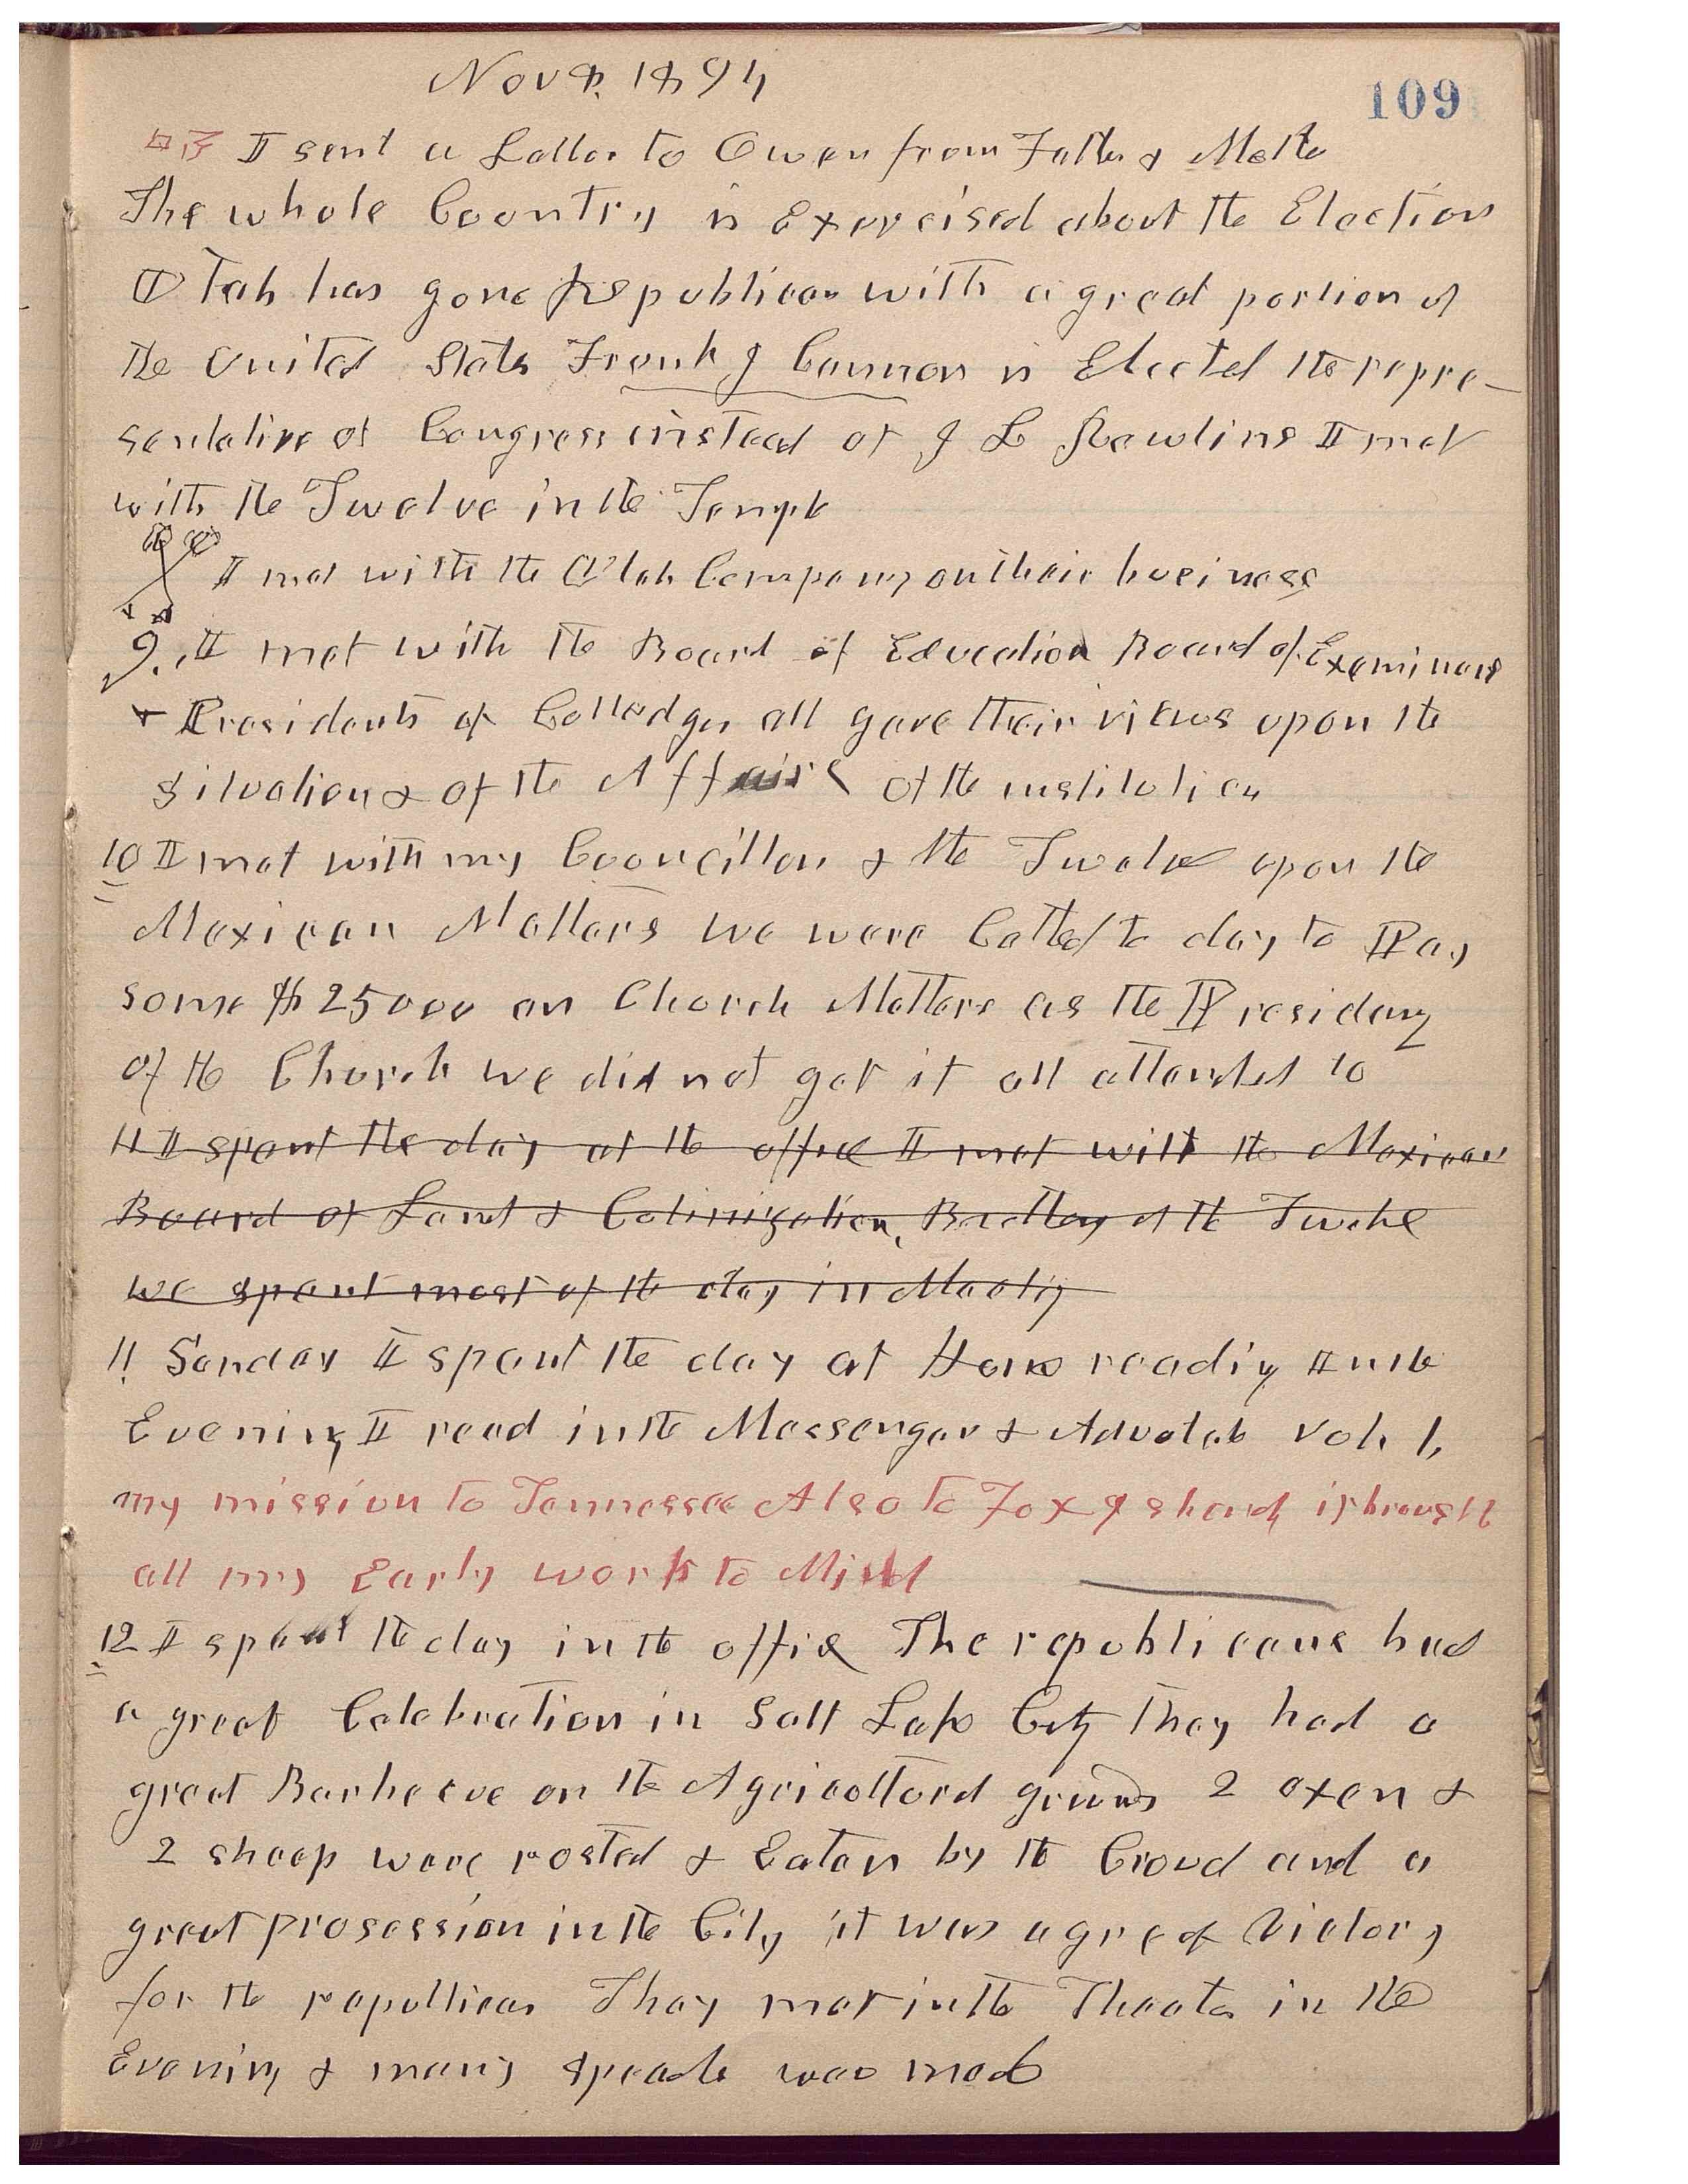 Nov 8. 1894
109
I sent a Letter to Owen from Father & Mother
The whole Country is Exercised about the Election
Utah has gone Republican with a great portion of
the United States Frank J Cannon is Elected the repre-
sentative of Congress instead of J L Rawlins I met
with the Twelve in the Temple
I met with the Utah Company on their buisness
9. I met with the Board of Education Board of Examiners
& Presidents of Colledges all gave their views upon the
situation & of the Affairs of the institution
10 I met with my Councillors & the Twelve upon the
Mexican Matters we were Called to day to Pay
some $25000 on Church Matters as the Presidency
of the Church we did not get it all attended to
11 I spent the day at the office I met with the Mexican
Board of Land & Colinization, of the Twelve
we spent most of the day in Meetig
11 Sunday I spent the day at Home readig In the
Evening I read in the Messenger & Advocate Vol. 1,
my mission to Tennessee Also to Fox Islands it brought
all my Early work to Mind
12 I spent the day in the office The republicans had
a great Celebration in Salt Lake City They had a
great Barbecue on the Agricultural grounds 2 oxen &
2 sheep were rosted & Eaten by the Croud and a
great prosession in the City it was a great Victory
for the republican They met in the Theater in the
Evening & many speach was made